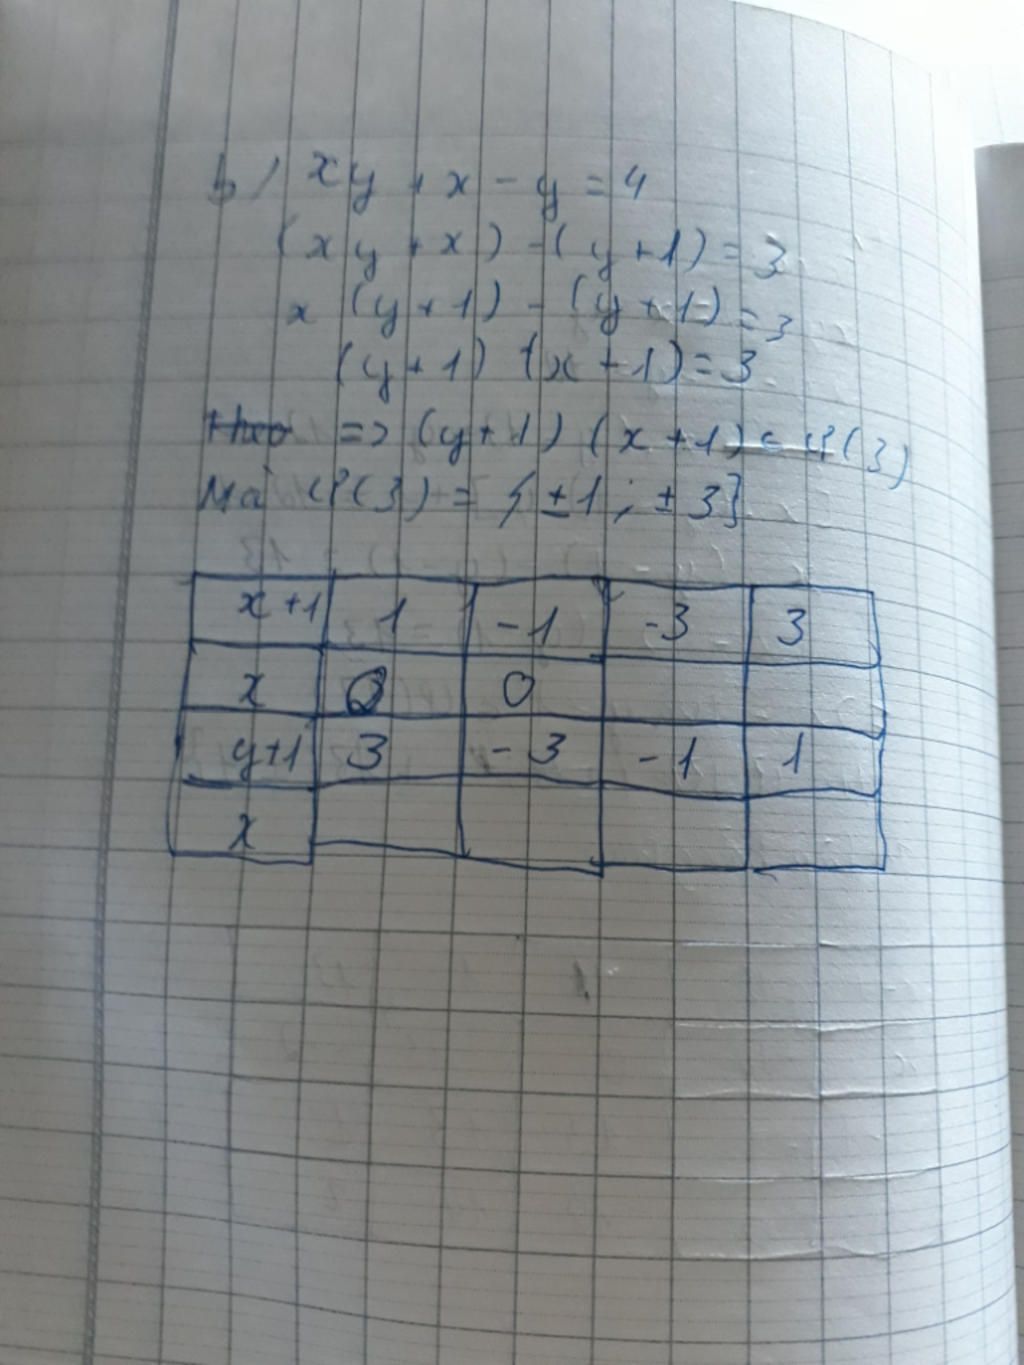 b) xy + x - y = 4
(xy + x) - (y + 1) = 3
x (y + 1) - (y + 1) = 3
(y + 1) (x - 1) = 3
=> (y + 1) (x + 1) ∈ Ư(3)
Mà Ư(3) = {±1; ±3}
x+1 1 -1 -3 3
x 0
y+1 3 -3 -1 1
x